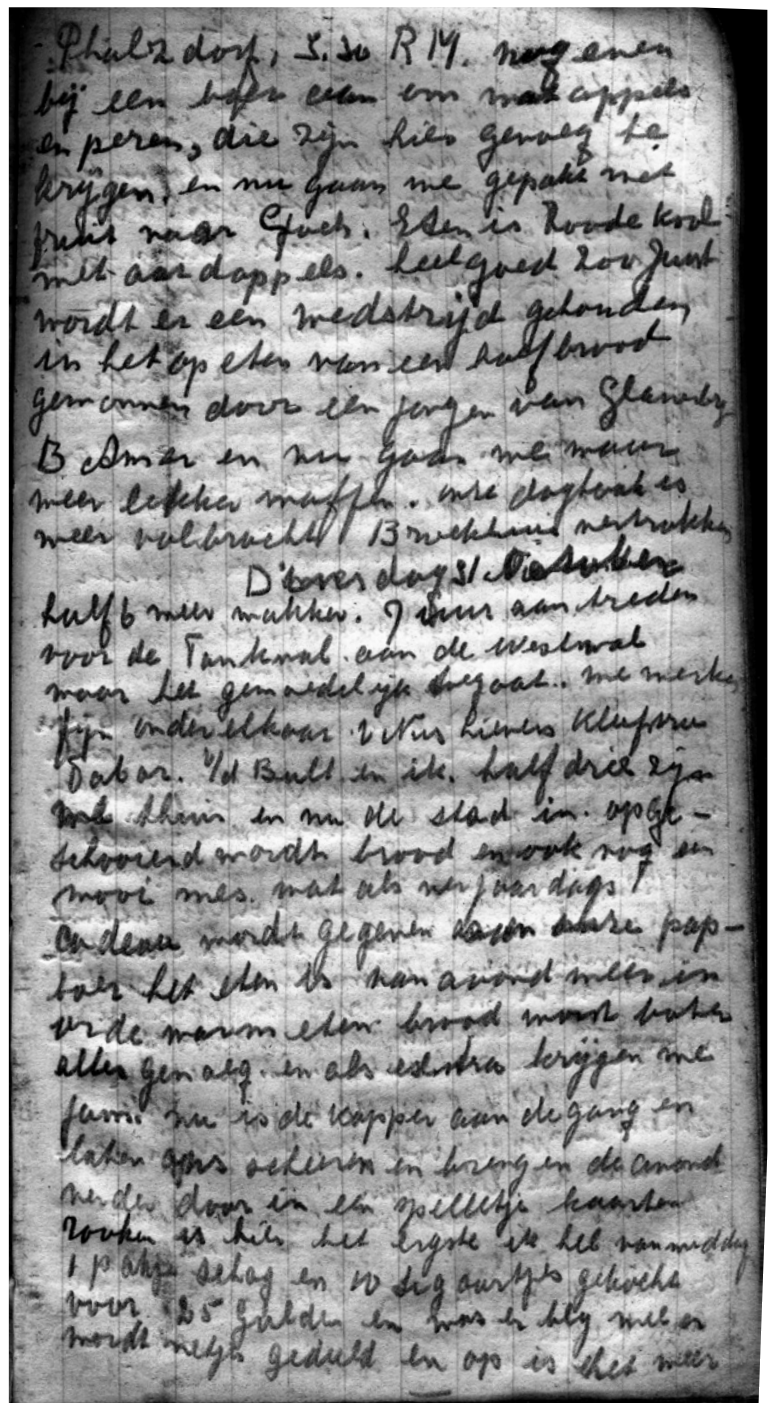 Phalzdorf, 5.30 RM. nog even
bij een boer aan om wat appels
en peren, die zijn hier genoeg te
krijgen. en nu gaan we gepakt met
fruit naar Goch. Eten is Roode kool
met aardappels. heel goed Zoo Juist
wordt er een wedstrijd gehouden
in het op eten van een half brood
gewonnen door een jongen van
B en nu gaan we maar
weer lekker maffen. onze dagtaak is
weer volbracht vertrokken
Dinsdag 31 October
half 6 weer wakker. 7 uur aan treden
voor de Tankwal aan de Westwal
waar het gemoedelijk toegaat. we werken
fijn onder elkaar Lievers
Tabor. v/d Bult en ik. half drie zijn
we thuis en nu de stad in. opge-
schooierd wordt brood en ook nog een
mooi mes. wat als verjaardags
cadeau wordt gegeven aan onze pap-
boer het eten is van avond weer in
orde warm eten brood worst boter
alles genoeg. en als extra krijgen we
jam. nu is de kapper aan de gang en
laten ons scheren en brengen de avond
verder door in een spelletje kaarten
rooken is hier het ergste ik heb vanmiddag
1 pakje schag en 10 sigaartjes gekocht
voor 25 gulden en was er blij mee er
wordt netjes gedeeld en op is het weer